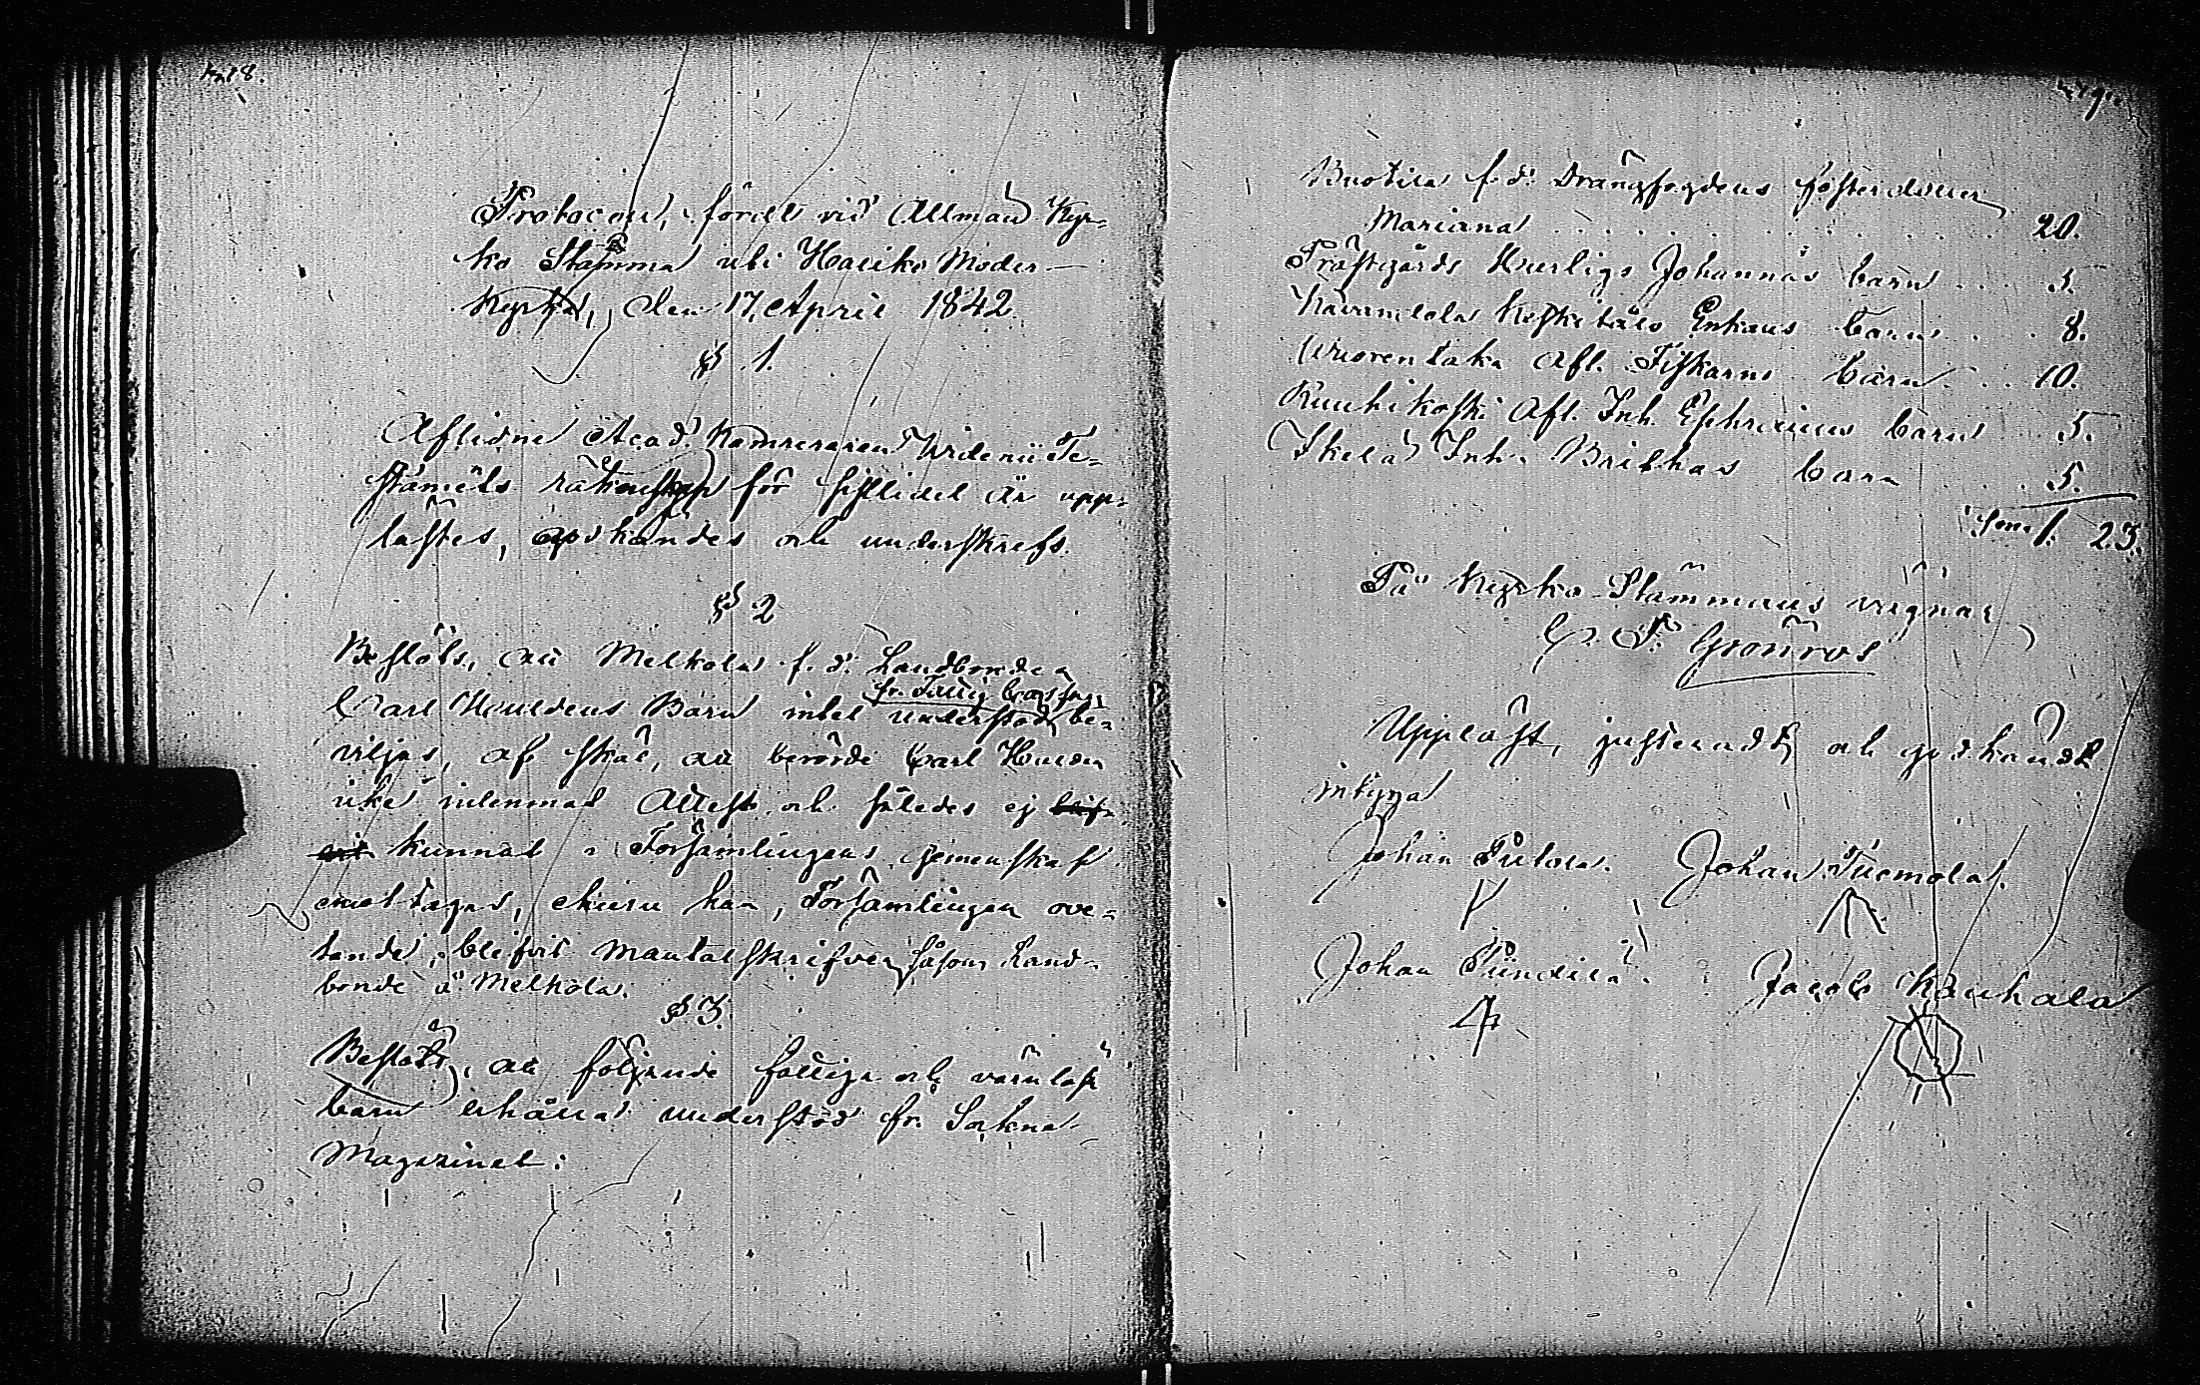 Protocoll, fördt vid Allmän Kyr-
ko Stämma uti Hauho Moder-
Kyrka, den 17. April 1842.
§ 1.
Aflidne Acad. Kamreraren Widenii Te-
staments räkenskap för sistlidet år upp-
lästes, godkändes och underskrefs.
§ 2
Beslöts, att Melkola f. d. Landbonden
fr. Fattig Cassan
Carl Houldens Barn intet understöd be-
viljas, af skäl, att berörde Carl
icke inlemnat Attest och således ej
kunnat i Församlingens gemenskap
emottagas, churu han, Församlingen ove-
tande, blifvit mantalskrifven såsom Land-
bonde å Melkola.
§ 3.
Beslöts, att följande fattiga och värnlösa
barn erhålla understöd fr. Sockne
Magazinet:
Buotila f. d. Drängfogdens fosterdotter
Mariana 20.
Prästgårds Johannas barn 5.
Enkans barn 8.
Wuorentaka Afl. Fiskarns barn 10.
Ruuhikoski Afl. Inh. Ephraims barn 5.
Skelä Inh. Britas barn 5.
23.
På Kyrko-Stämmans vägnar
Grönroos
Uppläst, justeradt och godkändt
intyga
Johan Johan Tuemola.
Johan Jacob Kauhala